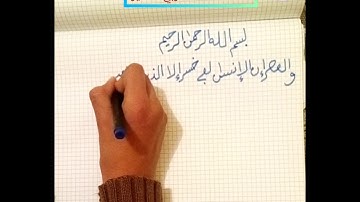 بسم الله الرحمن الرحيم
والعصر إن الإنسن لفي خسر إلا الذين